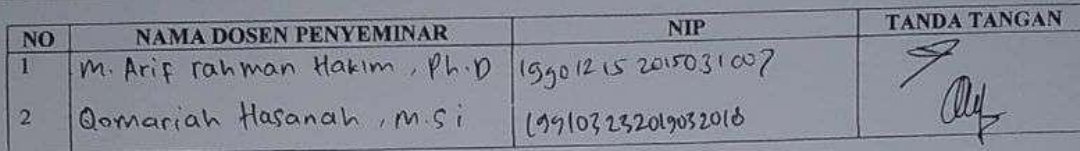 NO NAMA DOSEN PENYEMINAR NIP TANDA TANGAN
1 M. Arif rahman Hakim, Ph.D 199012152015031007
2 Qomariah Hasanah, M.Si 199103232019032018